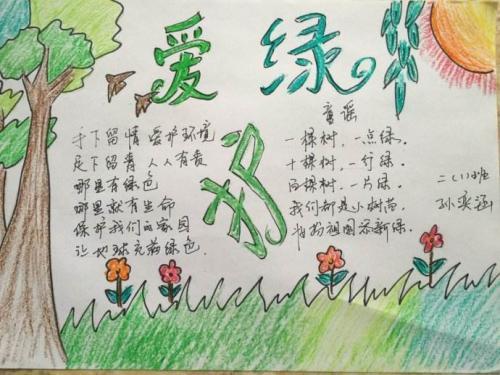 爱绿
护
手下留情 爱护环境
足下留青 人人有责
哪里有绿色
哪里就有生命
保护我们的家园
让地球充满绿色.
童谣
一棵树,一点绿.
十棵树,一行绿.
百棵树,一片绿.
我们都是小树苗,
祖国添新绿.
二(1)班
孙奕涵